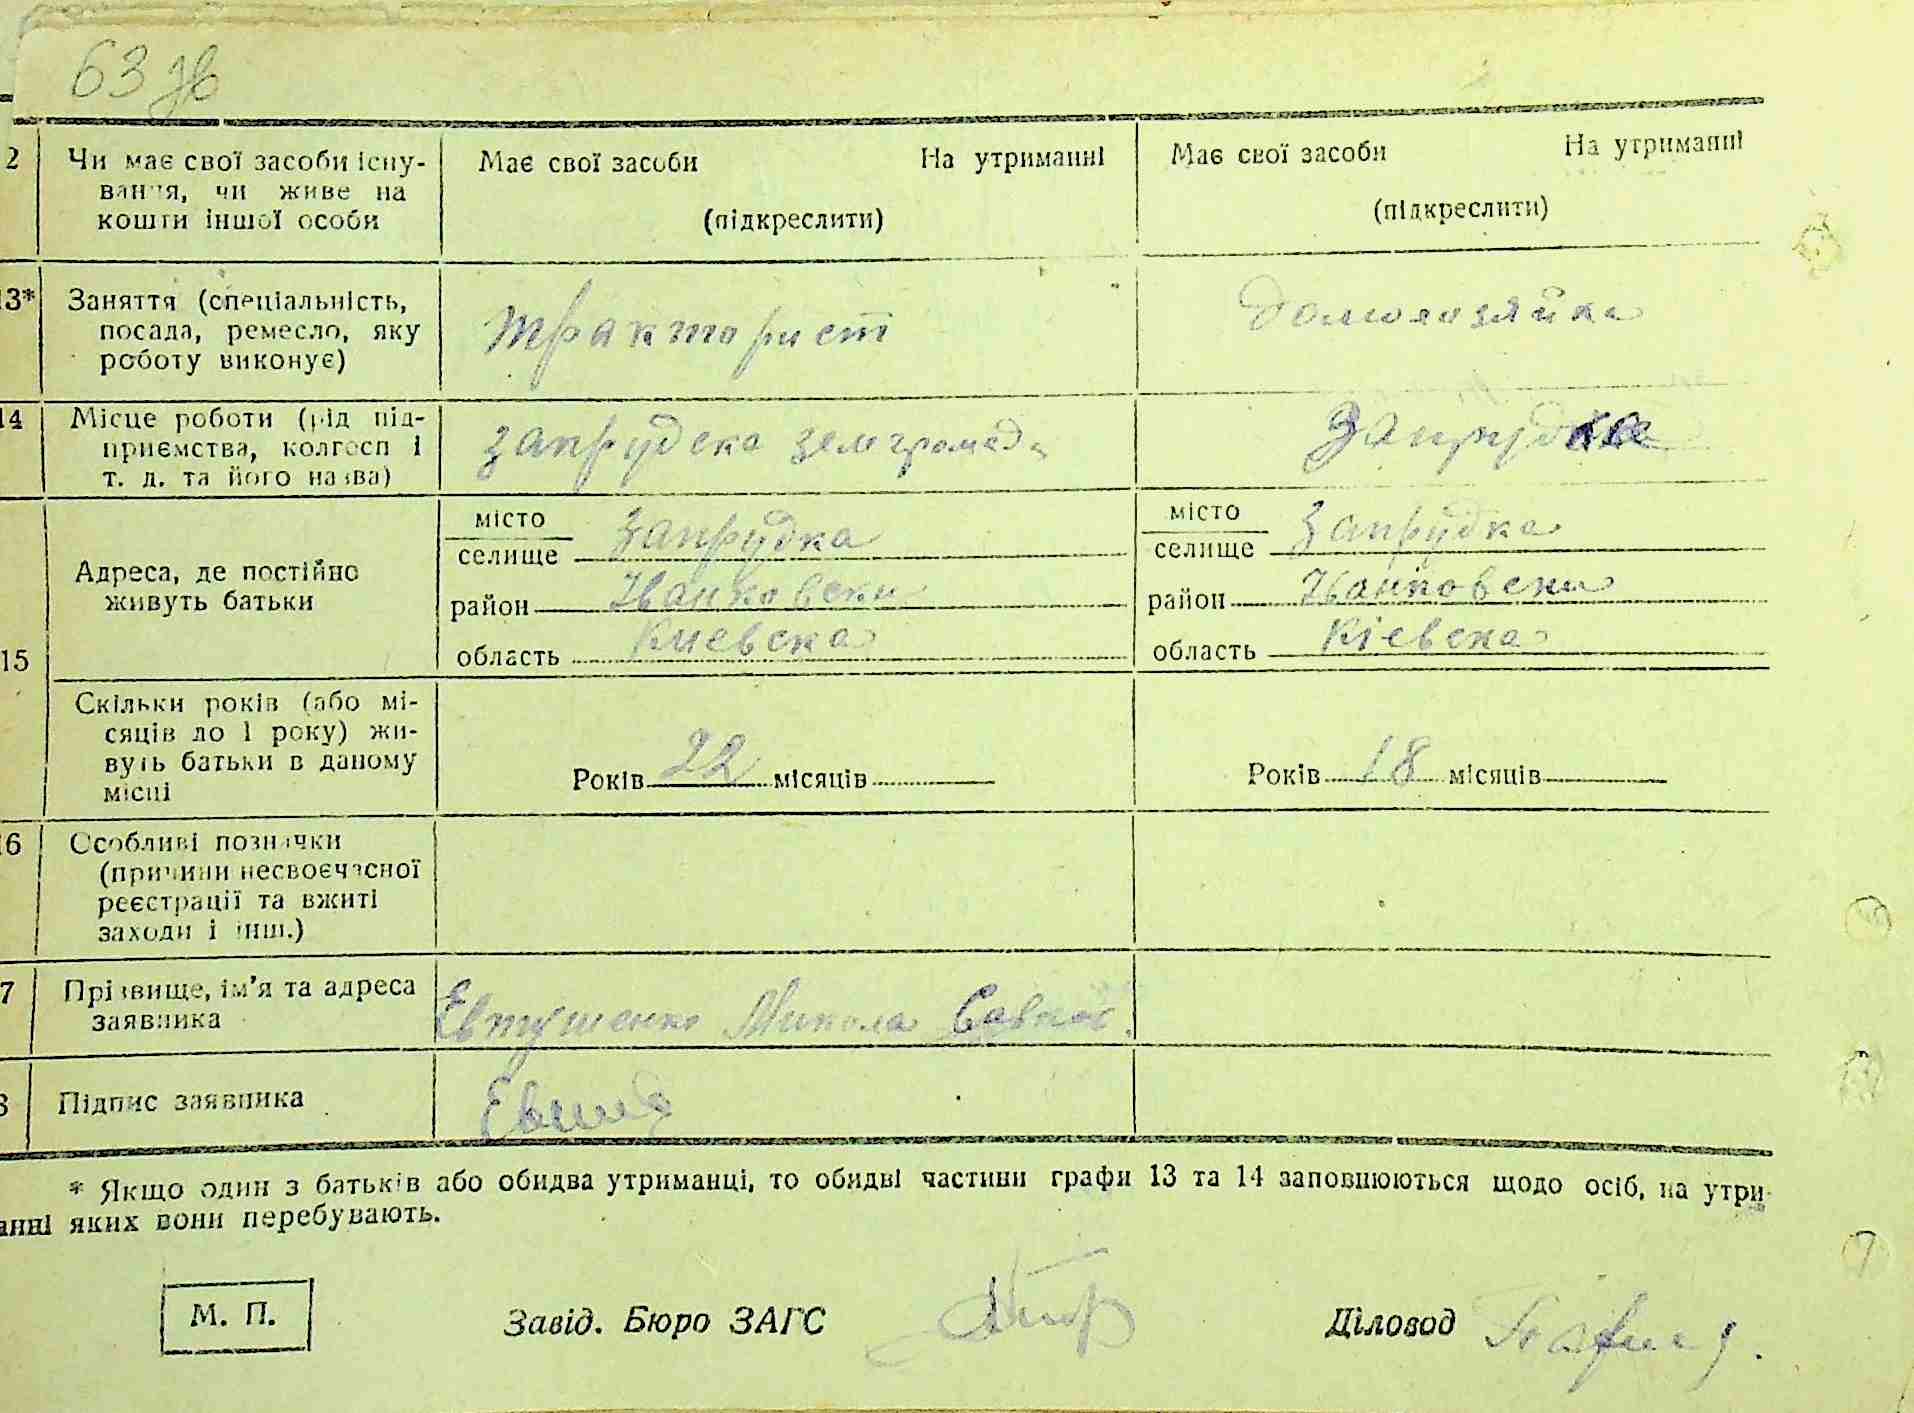 63 зв
2 Чи має свої засоби існу- Має свої засоби На утриманні Має свої засоби На утриманні
вання, чи живе на
кошти іншої особи (підкреслити) (підкреслити)
13* Заняття (спеціальність,
посада, ремесло, яку тракторист домохазяйка
роботу виконує)
14 Місце роботи (рід під-
приємства, колгосп і запрудска земгромада Запрудка
т. д. та його назва)
місто місто
селище Запрудка селище Запрудка
15 Адреса, де постійно
живуть батьки район Іванковски район Іванковски
область Киевска область Кіевска
Скільки років (або мі-
сяців до 1 року) жи-
вуть батьки в даному Років 22 місяців Років 18 місяців
місці
16 Особливі позначки
(причини несвоєчасної
реєстрації та вжиті
заходи і інш.)
7 Прізвище, ім'я та адреса Евтушенко Микола
заявника
8 Підпис заявника
* Якщо один з батьків або обидва утриманці, то обидві частини графи 13 та 14 заповнюються щодо осіб, на утри-
анні яких вони перебувають.
М. П. Завід. Бюро ЗАГС Діловод